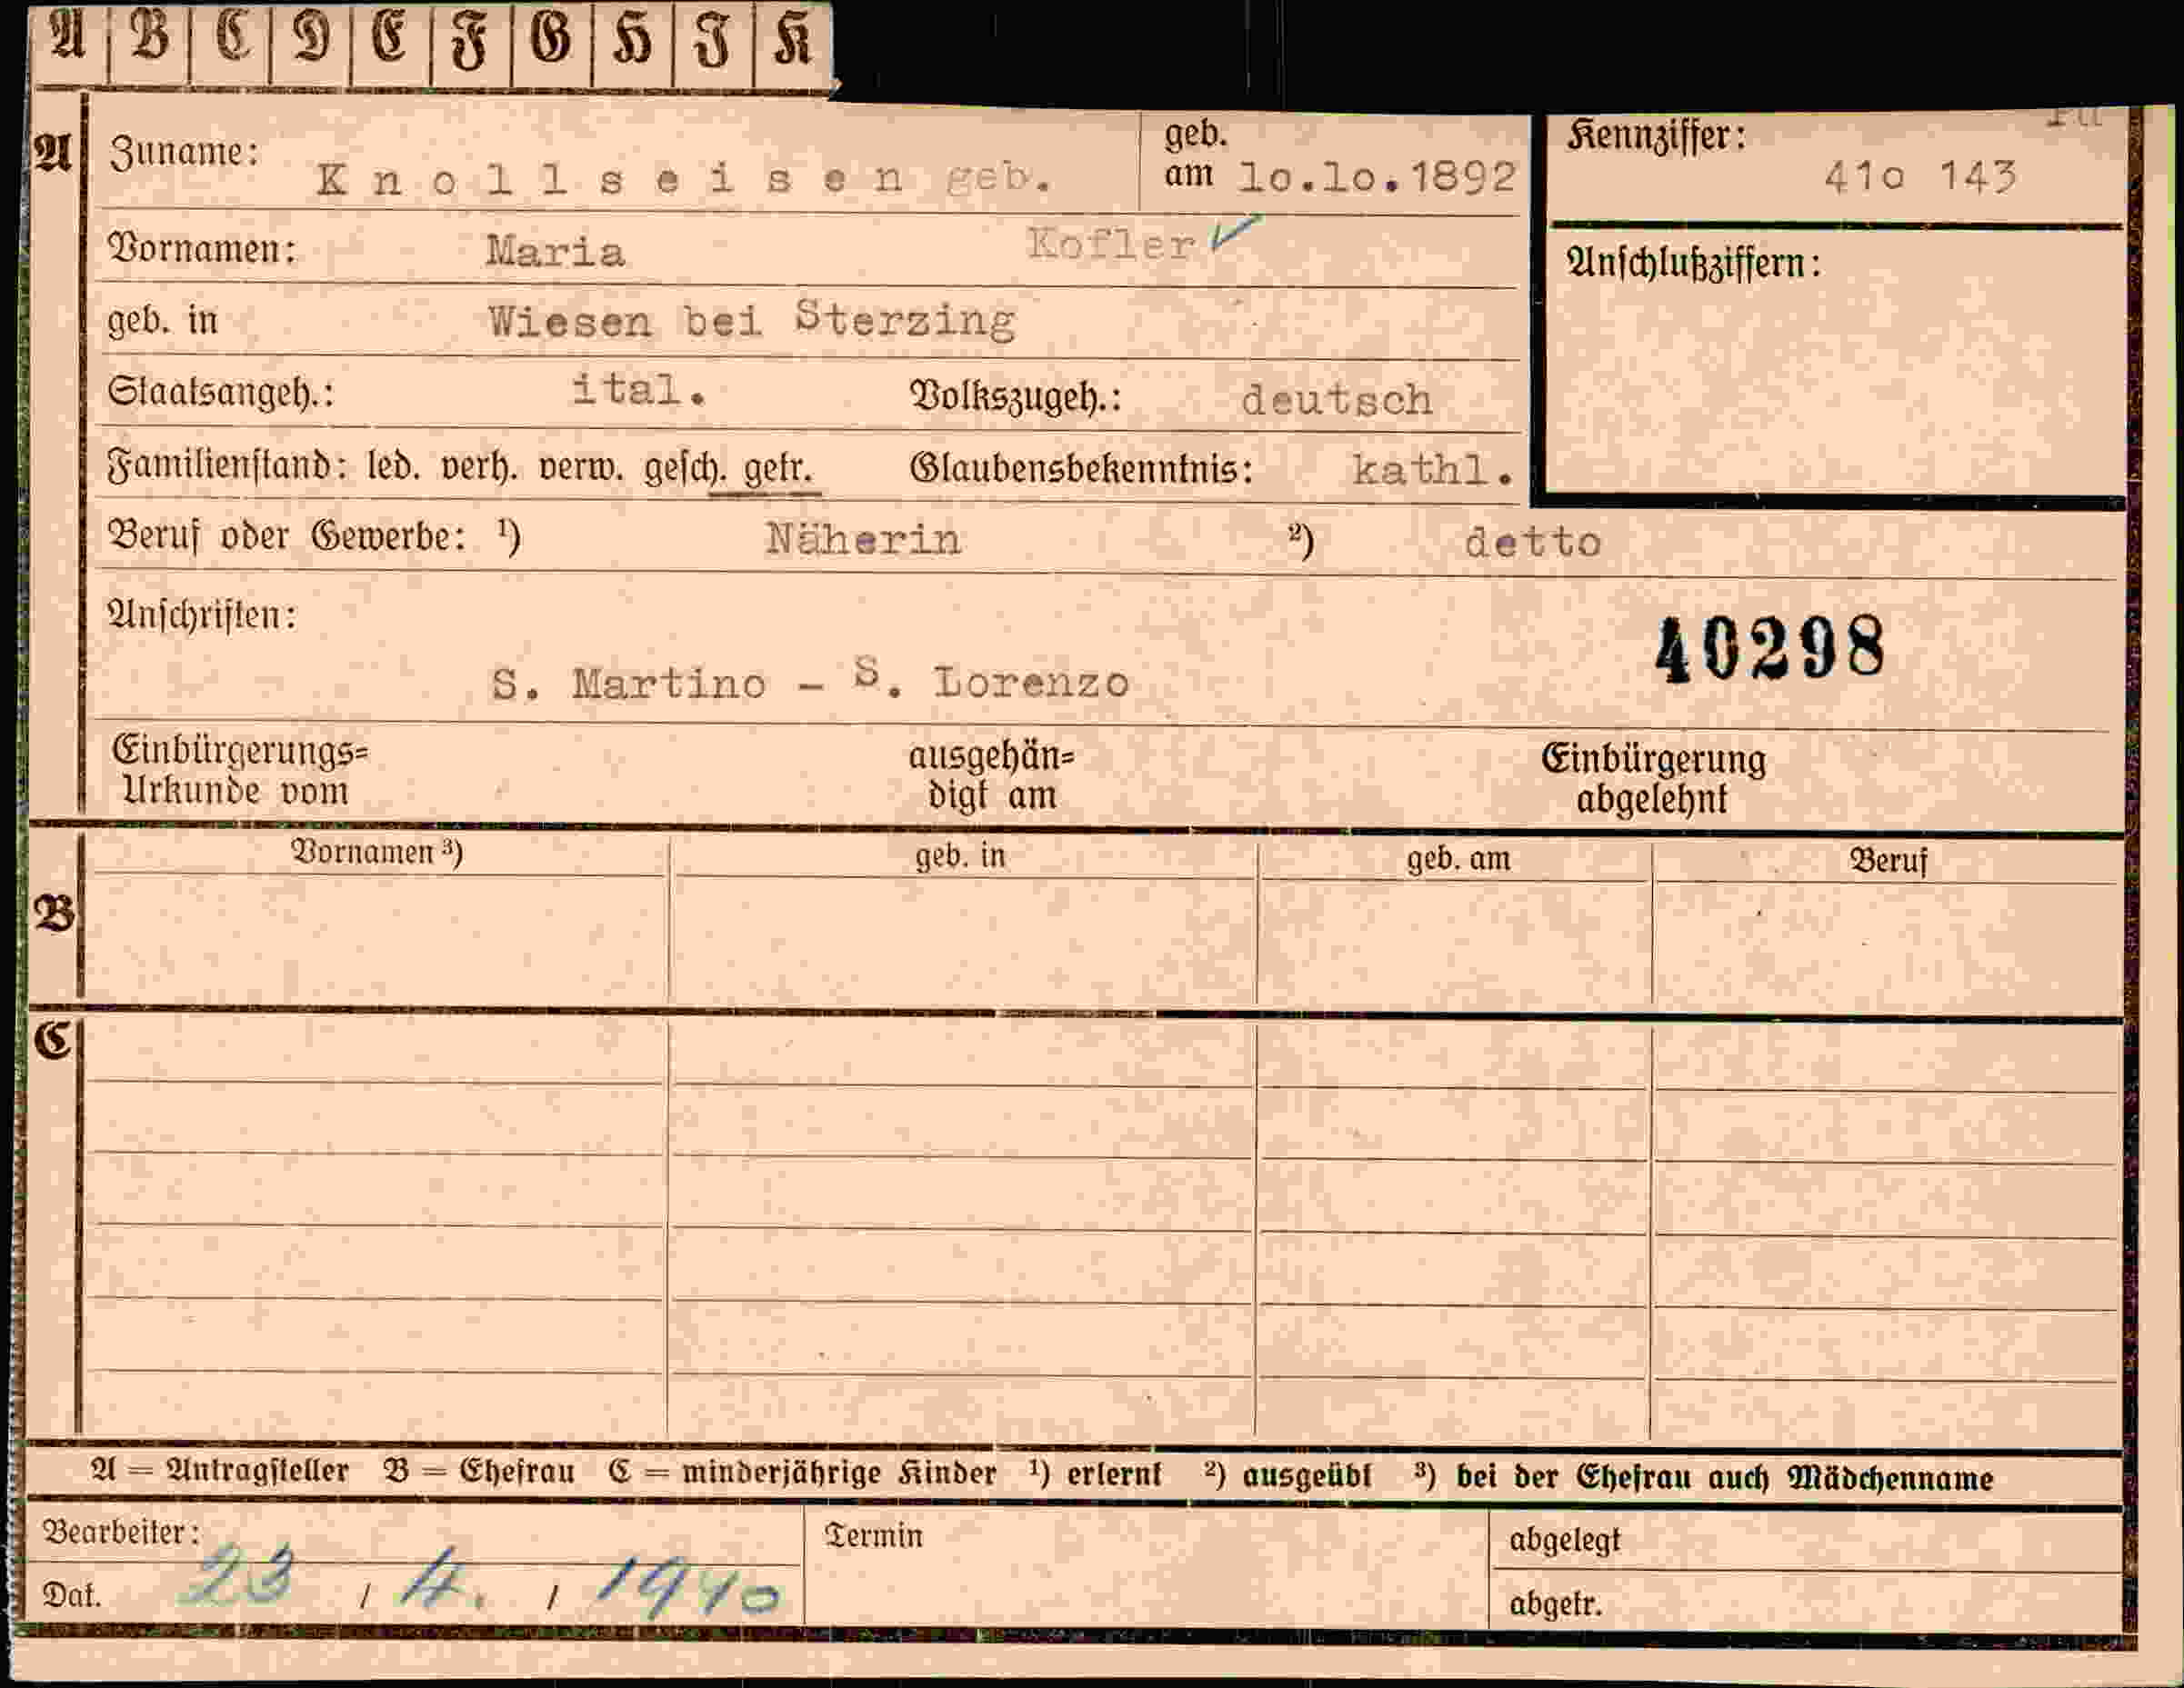 A B C D E F G H I K
A Zuname: Knollseisen geb. geb. am 1o.1o.1892 Kennziffer: 41o 143
Vornamen: Maria Kofler ✓ Anschlußziffern:
geb. in Wiesen bei Sterzing
Staatsangeh.: ital. Volkszugeh.: deutsch
Familienstand: led. verh. verw. gesch. getr. Glaubensbekenntnis: kathl.
Beruf oder Gewerbe: ¹) Näherin ²) detto
Anschriften:
40298
S. Martino - S. Lorenzo
Einbürgerungs= ausgehän= Einbürgerung
Urkunde vom digt am abgelehnt
Vornamen ³) geb. in geb. am Beruf
B
C
A = Antragsteller B = Ehefrau C = minderjährige Kinder ¹) erlernt ²) ausgeübt ³) bei der Ehefrau auch Mädchenname
Bearbeiter: Termin abgelegt
Dat. 23 / 4. / 1940 abgetr.